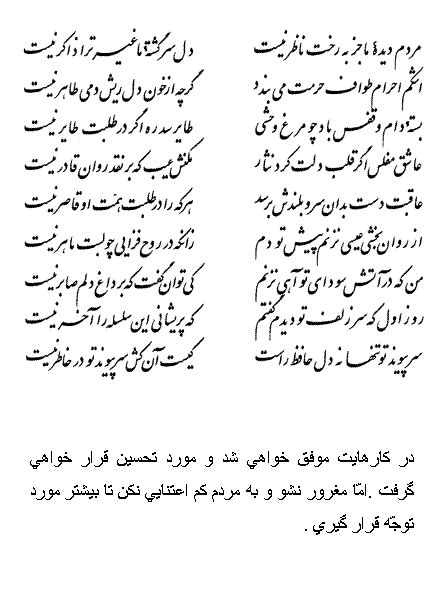 مردم دیدهٔ ما جز به رخت ناظر نیست دل سرگشتهٔ ما غیر ترا ذاکر نیست
اشکم احرام طواف حرمت می بندد گرچه از خون دل ریش دمی طاهر نیست
بستهٔ دام و قفس باد چو مرغ وحشی طایر سدره اگر در طلبت طایر نیست
عاشق مفلس اگر قلب دلت کرد نثار مکنش عیب که بر نقد روان قادر نیست
عاقبت دست بدان سرو بلندش برسد هر که را در طلبت همّت او قاصر نیست
از روان بخشی عیسی نزنم پیش تو دم زانکه در روح فزایی چو لبت ماهر نیست
من که در آتش سودای تو آهی نزنم کی توان گفت که بر داغ دلم صابر نیست
روز اول که سر زلف تو دیدم گفتم که پریشانی این سلسله را آخر نیست
سر پیوند تو تنها نه دل حافظ راست کیست آن کش سر پیوند تو در خاطر نیست
در كارهايت موفق خواهي شد و مورد تحسين قرار خواهي
گرفت .امّا مغرور نشو و به مردم كم اعتنايي نكن تا بيشتر مورد
توجّه قرار گيري .